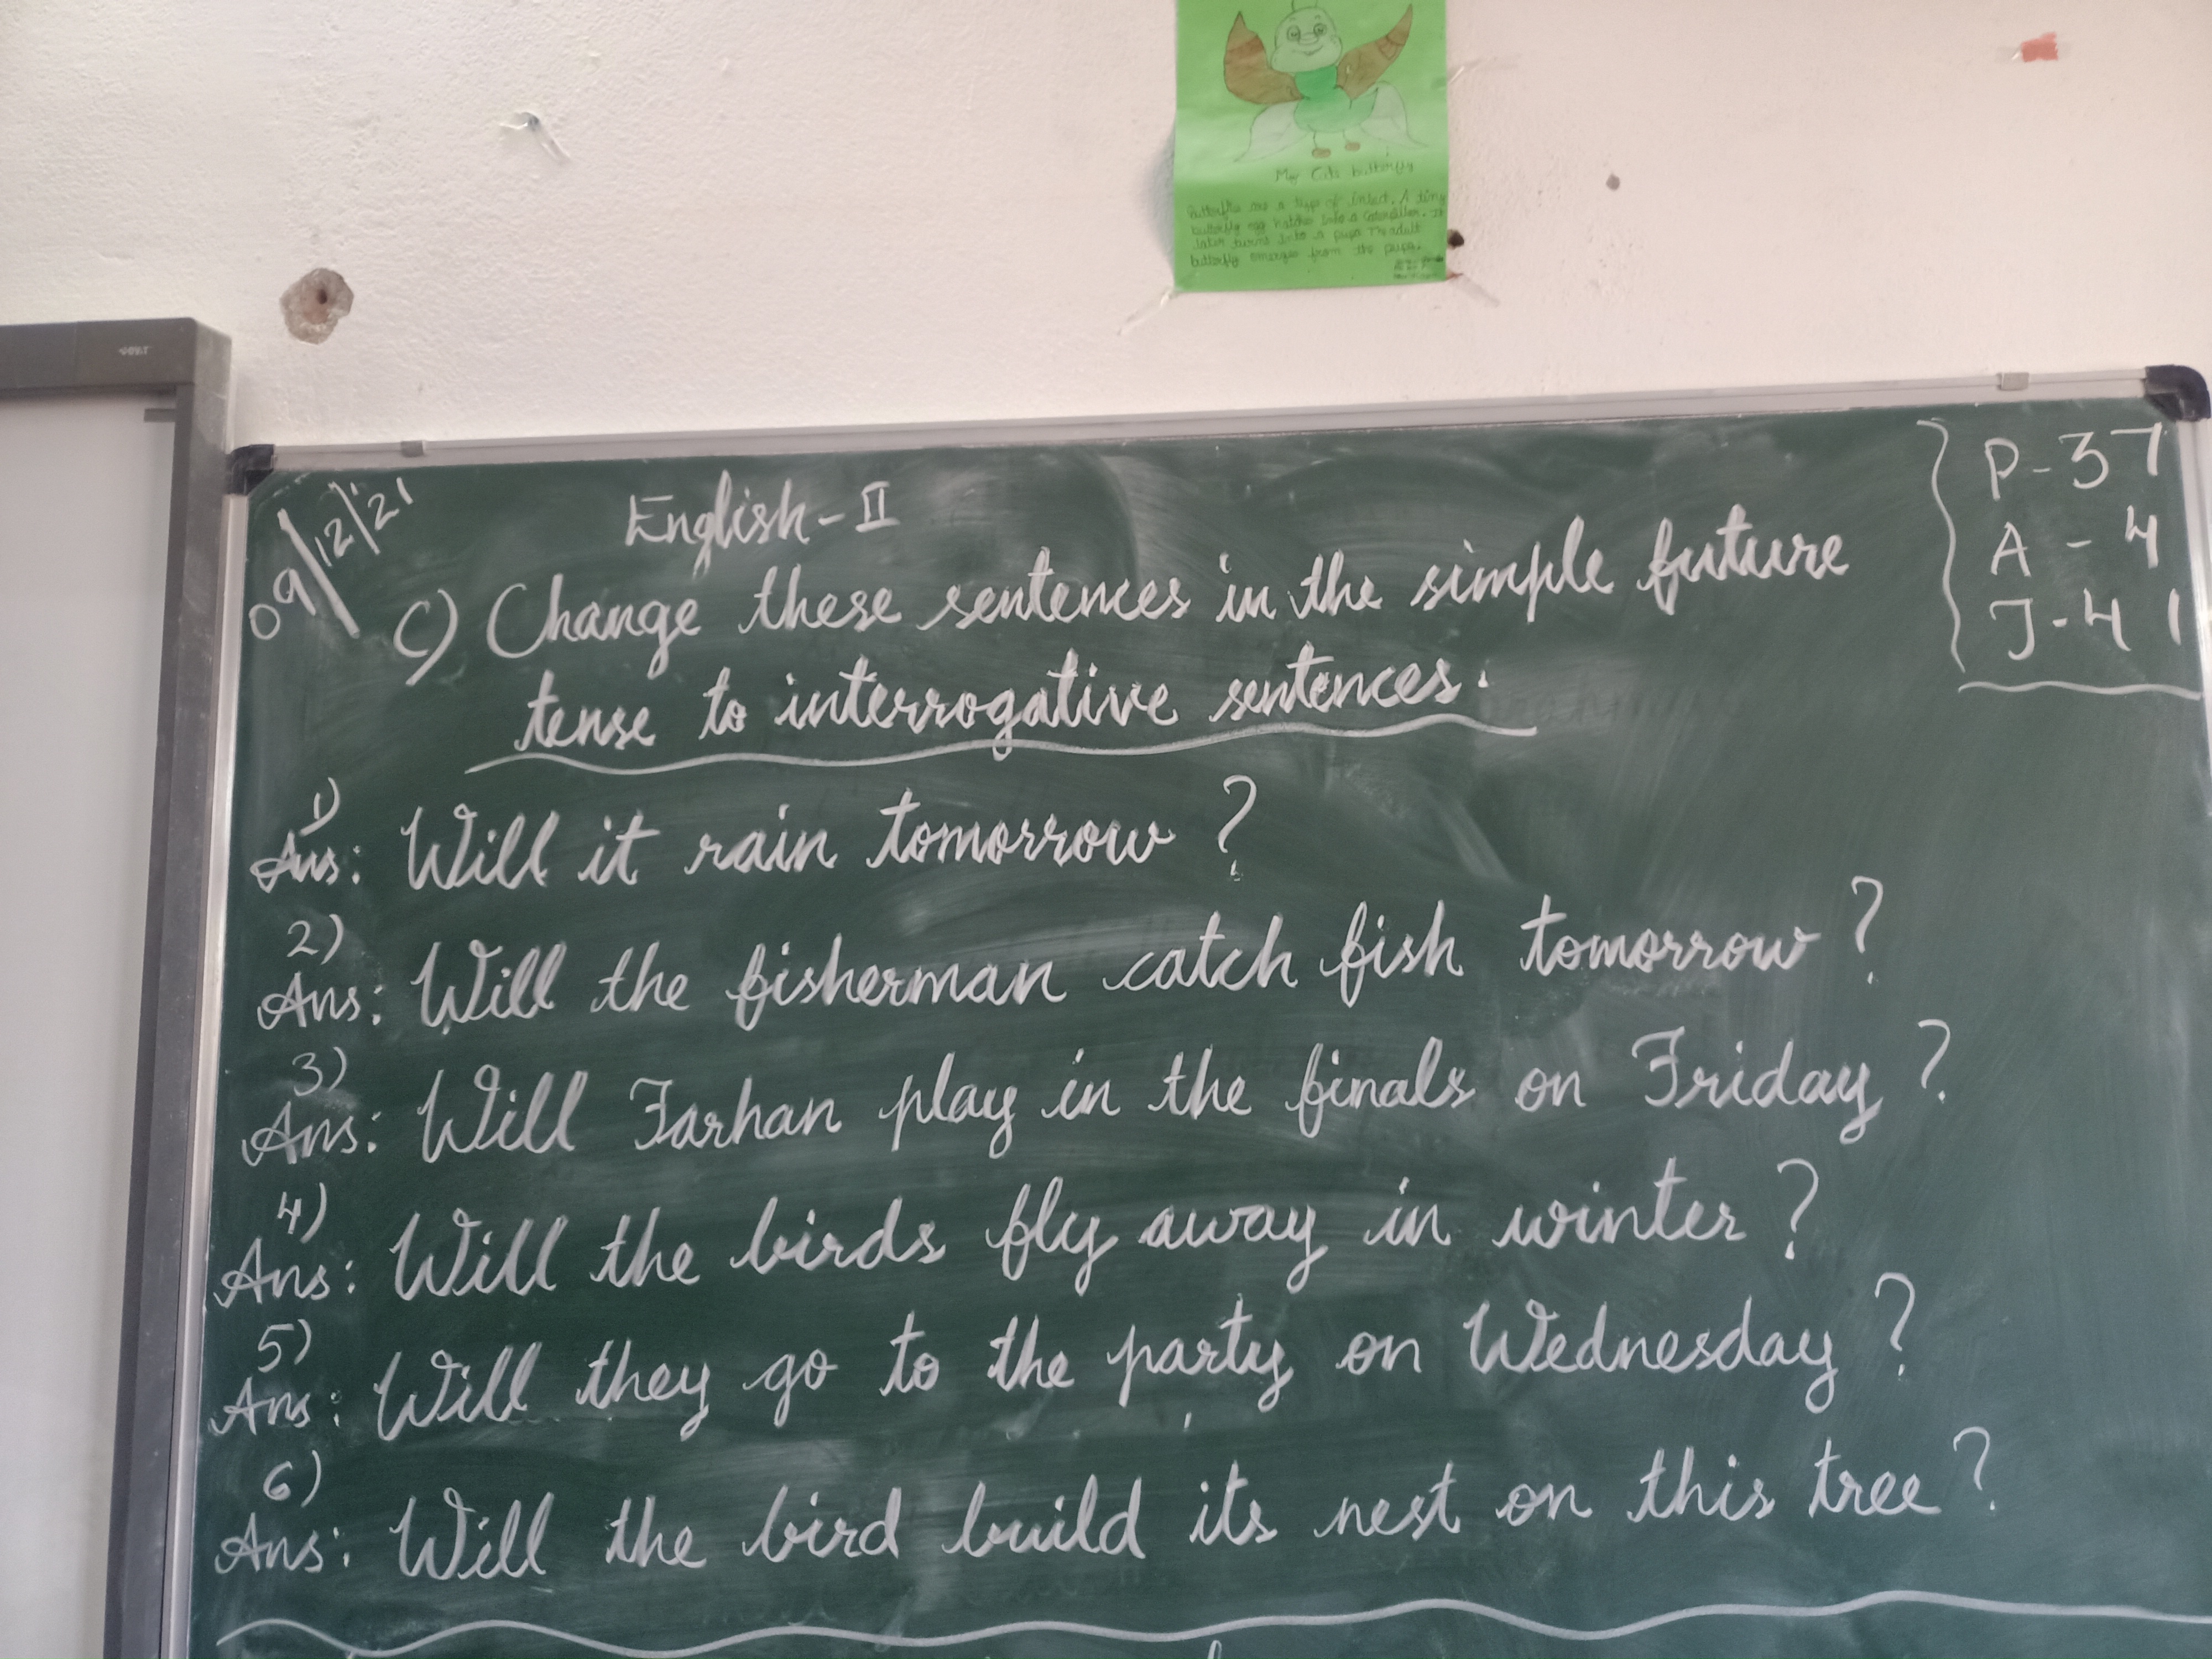 My Cats butterfly
Butterflie are a type of insect. A tiny
butterfly egg hatches into a Caterpillar. It
later turns into a pupa The adult
butterfly emerges from the pupa.
09/12/21
English-II
P-37
A-4
J-41
C) Change these sentences in the simple future
tense to interrogative sentences.
1)
Ans: Will it rain tomorrow?
2)
Ans: Will the fisherman catch fish tomorrow?
3)
Ans: Will Farhan play in the finals on Friday?
4)
Ans: Will the birds fly away in winter?
5)
Ans: Will they go to the party on Wednesday?
6)
Ans: Will the bird build its nest on this tree?